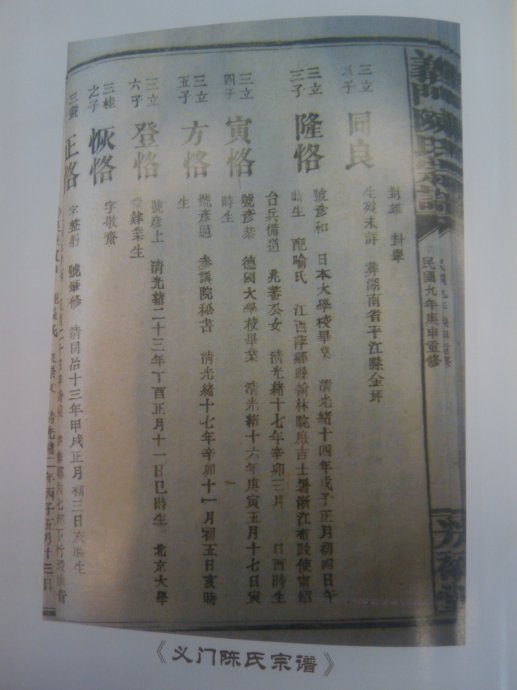 義門陳氏宗譜
民國九年庚申重修
三立
次子
同良
封雅 封舉
生歿未詳 葬湖南省平江縣金坪
三立
三子
隆恪
號彥和 日本大學校畢業 清光緒十四年戊子正月初四日午
時生 配喻氏 江西萍鄉縣翰林院庶吉士署浙江布政使甯紹
台兵備道 兆蕃公女 清光緒十七年辛卯三月 日酉時生
三立
四子
寅恪
號彥恭 德國大學校畢業 清光緒十六年庚寅五月十七日寅
時生
三立
五子
方恪
號彥通 參議院秘書 清光緒十七年辛卯十一月初五日亥時
生
三立
六子
登恪
號彥上 清光緒二十三年丁酉正月十一日巳時生 北京大學
堂肄業生
三桂
之子
恢恪
字敬齋
三
正恪
字整躬 號華修 清同治十三年甲戌正月初三日亥時生
清光緒二年丙子五月十三日
《义门陈氏宗谱》